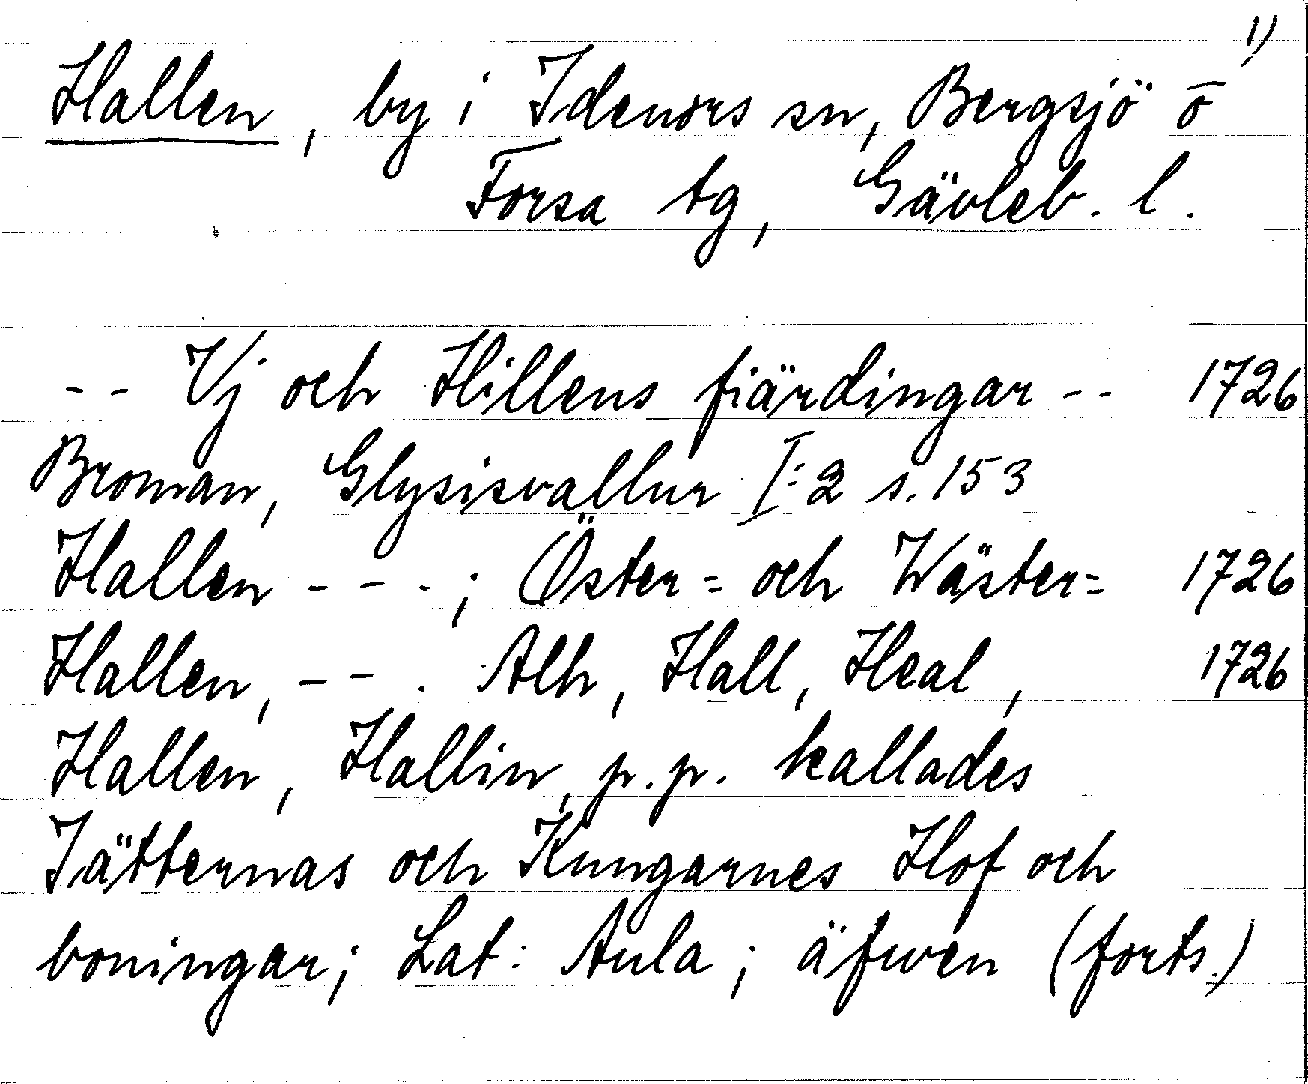 1)
Hallen, by i Idenors sn, Bergsjö o
Forsa tg, Gävleb. l.
-- Vj och Hillens fiärdingar -- 1726
Broman, Glysisvallur I:2 s. 153
Hallen - - -; Öster= och Wäster= 1726
Hallen, -- . Alh, Hall, Heal, 1726
Hallen, Hallin, p.p. kallades
Jätternas och Kungarnes Hof och
boningar; Lat: Aula; äfwen (forts.)